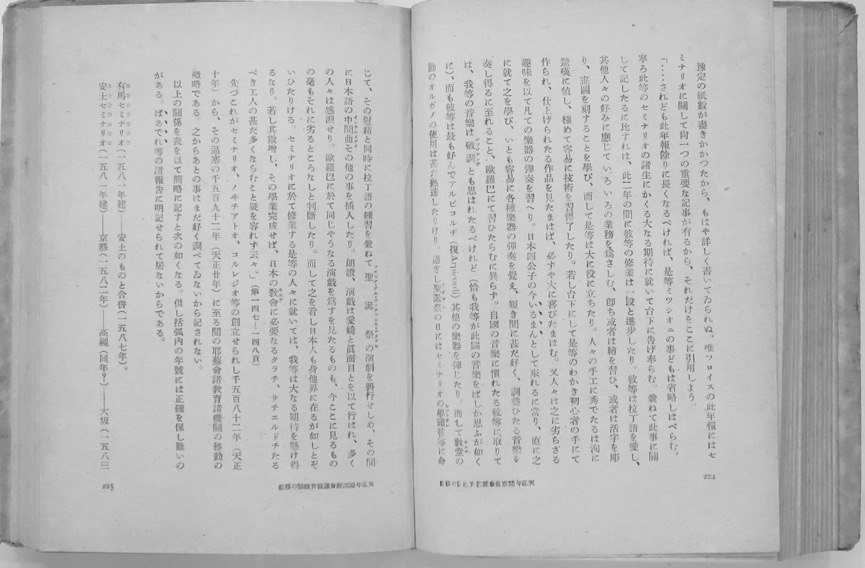 豫定の紙數が盡きかかつたから、もはや詳しく書いてゐられぬ。唯フロイスの此年報にはセ
ミナリオに關して尙一つの重要な記事が有るから、それだけをここに引用しよう。
「‥‥されども此年報餘りに長くなるべければ、是等ミツシオニの事どもは省略しはべらむ。
寧ろ此等のセミナリオの諸生にかくる大なる期待に就いて台下に告げ奉らむ。兼ねて此事に關
して記したるに比すれば、此二年の間に彼等の修業は一段と進步したり。彼等は拉丁語を愛し、
其他人々の好みに應じていろいろの業務を爲さしむ、卽ち或者は繪を習ひ、或者は活字を彫
り、畫圖を刻することを學び、而して是等は大に役に立ちたり。人々の手工に秀でたるは洵に
驚嘆に値し、極めて容易に技術を習得了したり。若し台下にして是等のわかき初心者の手にて
作られ、仕上げられたる作品を見たまはば、必ずや大に喜びたまはむ。又人々は之に劣らざる
趣味を以て凡ての樂器の彈奏を習へり。日本四公子の今いるまんとして來れるに當り、直に之
に就て之を學び、いとも容易に各種樂器の彈奏を覺え、短き間に甚だ好く、調整ひたる音樂を
奏し得るに至れること、歐羅巴にて習ひたらむに異らず。自國の音樂に慣れたる彼等に取りて
は、我等の音樂は破調とも思はれたるべけれど(恰も我等が此國の音樂をばしか思ふが如く
に)、而も彼等は最も好んでアルピコルヂ(複Arpicordi)其他の樂器を彈じたり。而して敎堂の
勤のオルガノの使用は甚だ熟達したりけり。過ぎし聖誕祭の日にはセミナリオの學頭彼等に命
224
じて、その財藉と同時に拉丁語の練習を兼ねて聖誕祭の演劇を興行せしめ、その間
に日本語の中間曲その他の事を插入したり。朗讀、演戲は愛嬌と眞面目とを以て行はれ、多く
の人々は感淚せり。歐羅巴に於て同じやうなる演戲を爲すを見たるものも、今ここに見るもの
の毫もそれに劣るところなしと判斷したり。而して之を看し日本人も身他界に在るが如しとぞ
いひたりける。セミナリオに於て修業する是等の人々に就いては、我等は大なる期待を懸け得
るなり。若し其數增し、その學業完成せば、日本の敎會に必要なるクラチ、サチエルドチたる
べき工人の甚だ多くならむこと疑を容れず云々。」(第一四七―一四八頁)
先づこれがセミナリオ、ノヰチアトオ、コルレジオ等の創立せられし千五百八十二年(天正
十年)から、その退塞の千五百九十二年(天正廿年)に至る間の耶蘇會諸敎育諸機關の移動の
槪略である。之からあとの事はまだ好く調べてゐないから記されない。
以上の關係を表を以て簡略に記すと次の如くなる。但し括弧內の年號には正確を保し難いの
がある。ばあでれ等の諸報告に明記せられて居ないからである。
有馬セミナリオ(一五八一年建)――安土のものと合併(一五八七年)。
安土セミナリオ(一五八一年建)――京都(一五八二年)――高槻(同年?)――大坂(一五八三
225